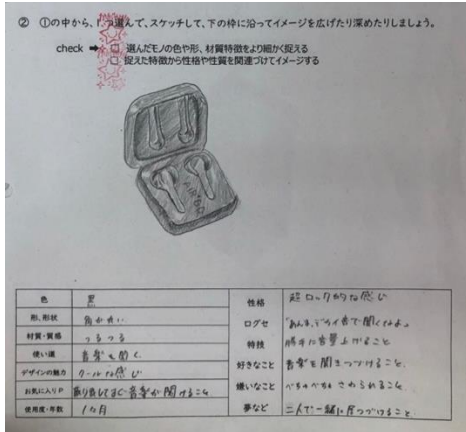 ② ①の中から、1つ選んで、スケッチして、下の枠に沿ってイメージを広げたり深めたりしましょう。
check ➡ □ 選んだモノの色や形、材質特徴をより細かく捉える
□ 捉えた特徴から性格や性質を関連づけてイメージする
色 黒
形、形状 角が丸い
材質・質感 つるつる
使い道 音楽を聞く
デザインの魅力 クールな感じ
お気に入りP 取り出してすぐ音楽が聞けること
使用度・年数 1ヶ月
性格 超ロック的な感じ
口グセ 「あんま、デカイ音で聞くなよ。
特技 勝手に音量上がること
好きなこと 音楽を聞きつづけること
嫌いなこと べちゃべちゃさわられること
夢など 二人で一緒に居つづけること